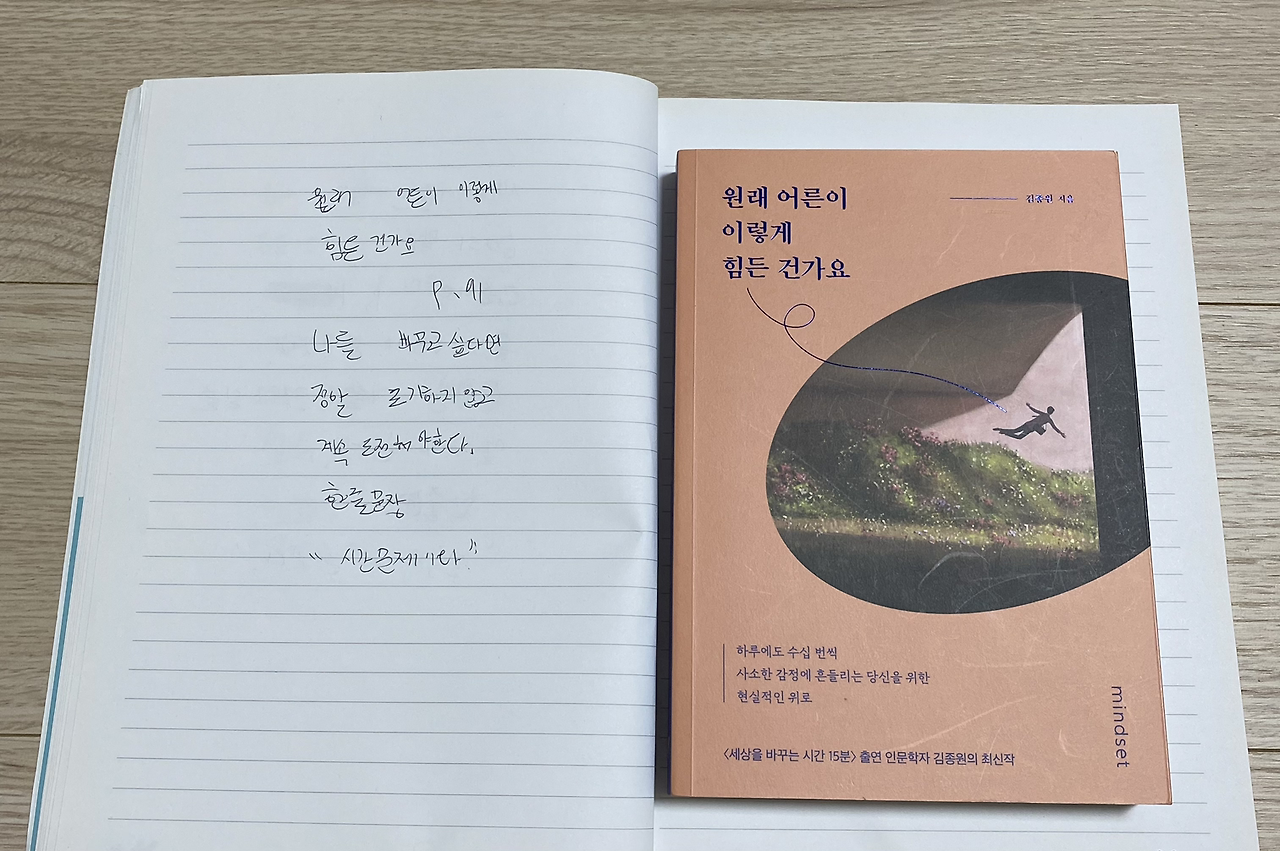 원래 어른이 이렇게
힘든 건가요
P. 91
나를 바꾸고 싶다면
정말 포기하지 않고
계속 도전해야한다.
한줄문장
"시간문제이다"
원래 어른이
이렇게
힘든 건가요
김종원 지음
하루에도 수십 번씩
사소한 감정에 흔들리는 당신을 위한
현실적인 위로
mindset
<세상을 바꾸는 시간 15분> 출연 인문학자 김종원의 최신작